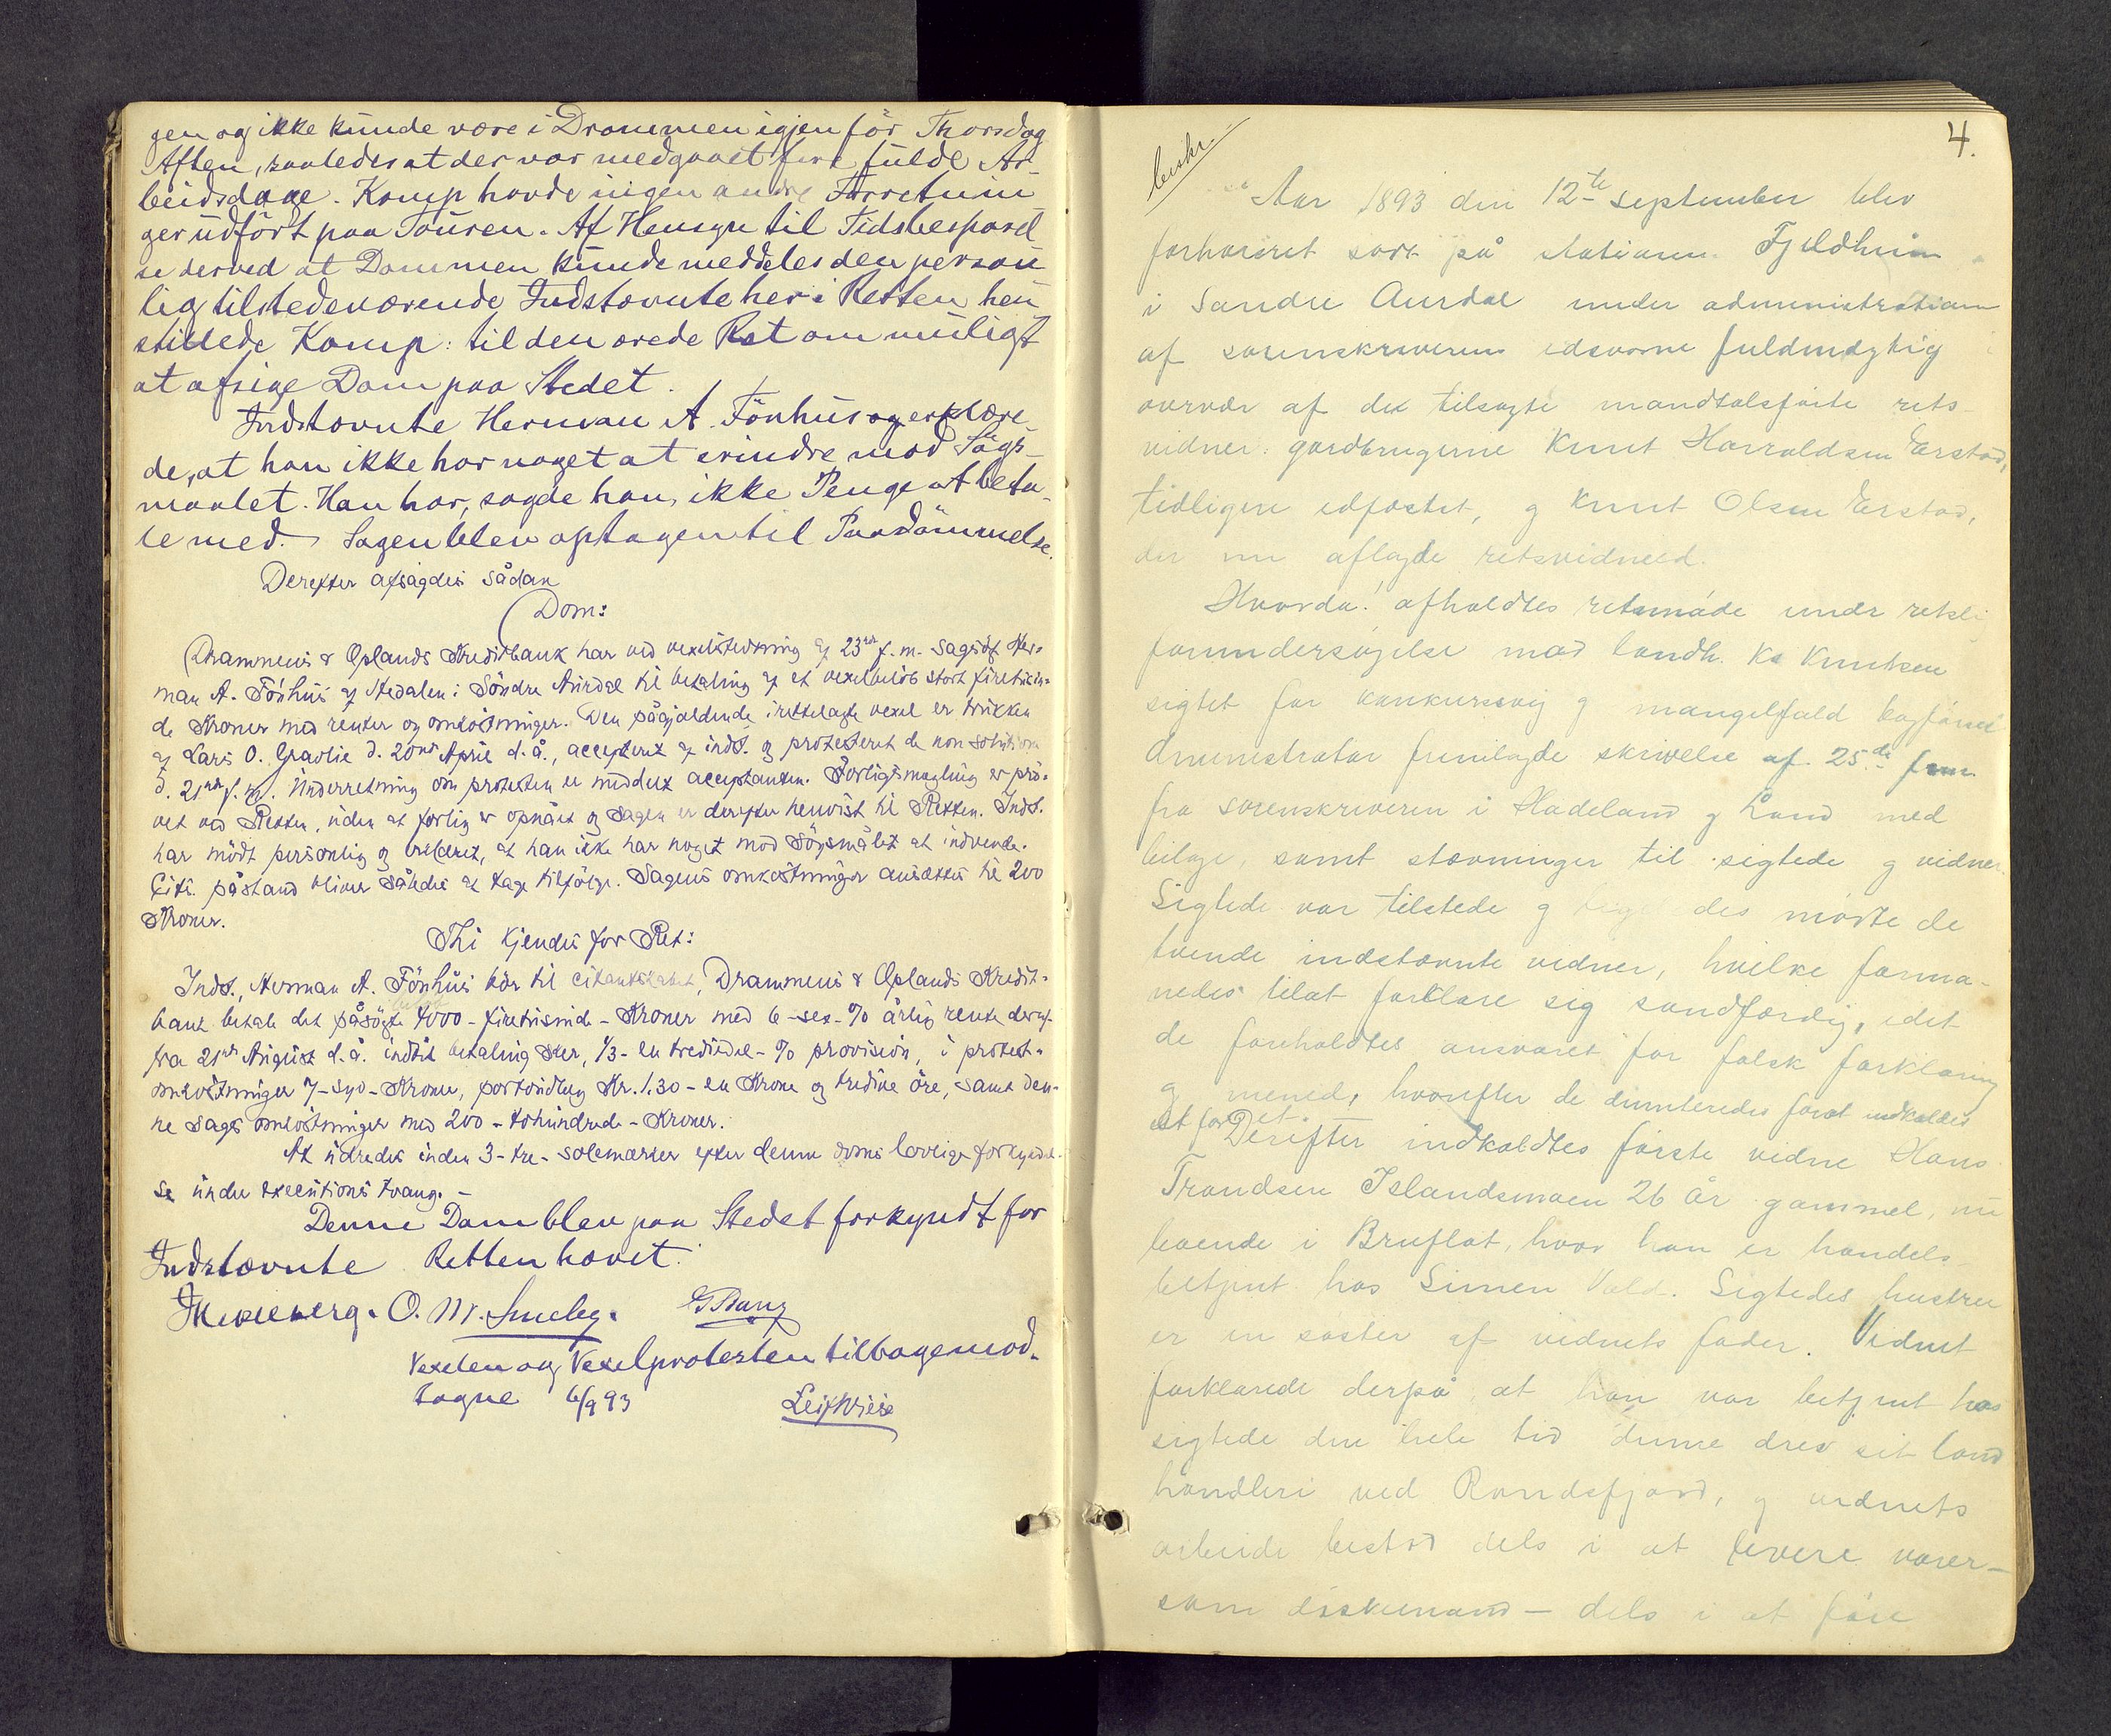 gen og ikke kunde være i Drammen igjen før Thorsdag
Aften, saaledes at der var medgaaet fire fulde Ar-
beidsdage. Komp havde ingen andre Forretnin
ger udført paa Touren. Af Hensyn til Tidsbesparel
se derved at Dommen kunde meddeles den person
lig tilstedeværende Indstævnte her i Retten hen
stillede Komp: til den ærede Ret om muligt
at afsige Dom paa Stedet.
Indstævnte Herman A. Fönhus og erklære-
de, at han ikke har noget at erindre mod Søgs-
maalet. Han har, sagde han, ikke Penge at beta-
le med. Sagen blev optagen til Paadömmelse.
Derefter afsagdes sådan
Dom:
Drammens & Oplands Kreditbank har ved vexelstevning af 23de f. m. sagsögt Her-
man A. Fönhus af Hedalen i Söndre Aurdal til betaling af et vexelbelöb stort firetusin-
de Kroner med renter og omkostninger. Den pågjældende i rettelagte vexel er trukken
af Lars O. Graslie d. 20de April d. å., accepteret af indst. og protesteret de non solutione
d. 21de f. m. Underretning om protesten er meddelt acceptanten. Forligsmægling er prö-
vet ved Retten, uden at forlig er opnået og sagen er derefter henvist til Retten. Indst.
har mödt personlig og erklæret, at han ikke har noget mod sögsmålet at indvende.
Citi. påstand bliver således at tage tilfölge. Sagens omkostninger ansættes til 200
Kroner.
Thi kjendes for Ret:
Indst., Herman A. Fönhus bör til citantskabet, Drammens & Oplands Kredit-
bank betale det påsögte belöb 4000 - firetusinde - Kroner med 6 - sex - % årlig rente deraf
fra 21de August d. å. indtil betaling sker, 1/3 - en trediedel - % provision, i protest-
omkostninger 7 - syv - Kroner, portoudlæg Kr. 1.30 - en Krone og tredive öre, samt den-
ne sags omkostninger med 200 - tohundrede - Kroner.
At udredes inden 3 - tre - solemærker efter denne doms lovlige forkyndel-
se under executions tvang. -
Denne Dom blev paa Stedet forkyndt for
Indstævnte Retten hævet.
O. M. Smeby.
Vexelen og Vexelprotesten tilbagemod-
tagne 6/9 93 Leif Wiese
4.
beskr.
Aar 1893 den 12te september blev
forhörsret sat på stationen Fjeldheim
i Søndre Aurdal under administration
af sorenskriverens edsvorne fuldmægtig i
overvær af de tilsagte mandtalsførte rets-
vidner: gardbrugerne Knut Harraldsen Erstad,
tidligere edfæstet, g Knut Olsen Erstad,
der nu aflagde retsvidneed.
Hvorda! afholdtes retsmøde under retslig
forundersøgelse mod landh. Ks Knutsen
sigtet for konkurssvig g mangelfuld bogførsel
Administrator fremlagde skrivelse af 25de f.m.
fra sorenskriveren i Hadeland g Land med
bilage, samt stævninger til sigtede g vidner.
Sigtede var tilstede g ligeledes mødte de
tvende indstævnte vidner, hvilke forma-
nedes til at forklare sig sandfærdig, idet
de foreholdtes ansvaret for falsk forklaring
g mened, hvorefter de dimitteredes for at indkaldes
et for et.
Derefter indkaldtes første vidne Hans
Trondsen Islandsmoen 26 år gammel, nu
boende i Bruflat, hvor han er handels-
betjent hos Simen Vold. Sigtedes hustru
er en søster af vidnets fader. Vidnet
forklarede derpå at han var betjent hos
sigtede den hele tid denne drev sit land
handleri ved Randsfjord, g vidnets
arbeide bestod dels i at levere varer -
som diskemand - dels i at føre